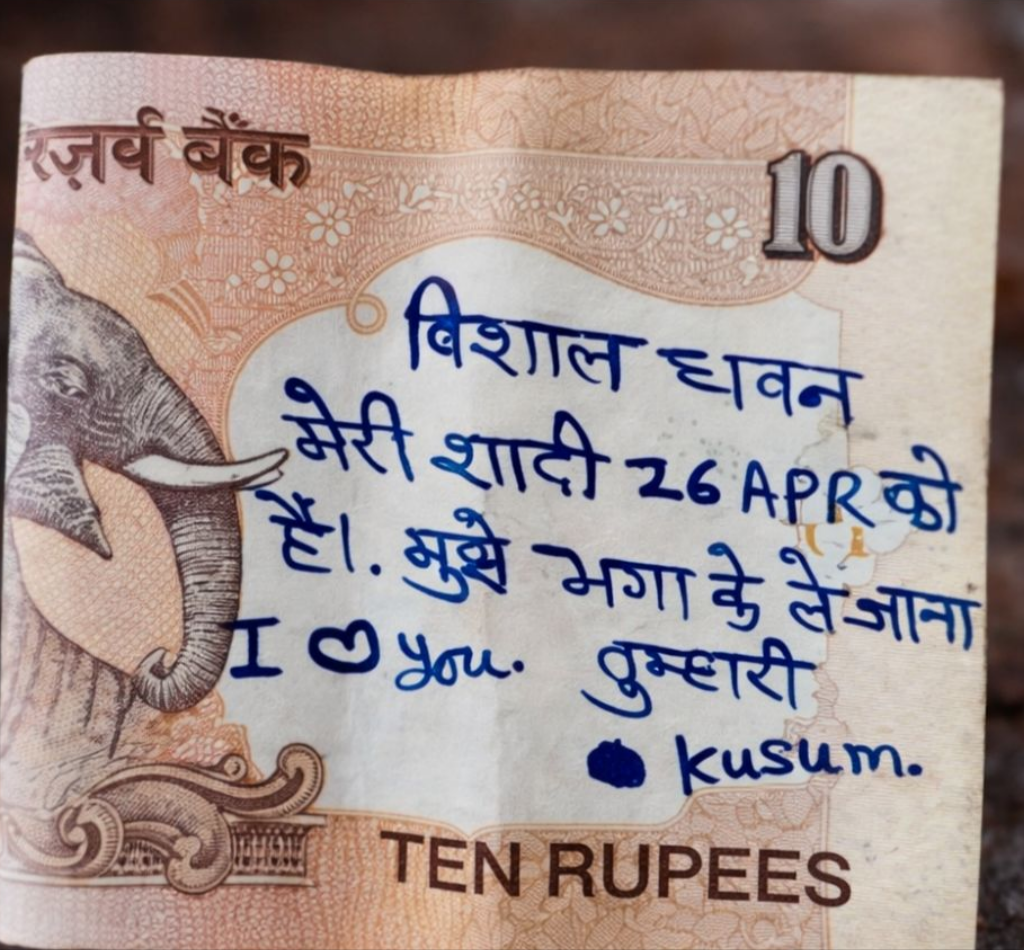 रज़र्व बैंक
10
विशाल धावन
मेरी शादी 26 APR को
हैं।. मुझे भगा के ले जाना
I ♡ you. तुम्हारी
kusum.
TEN RUPEES